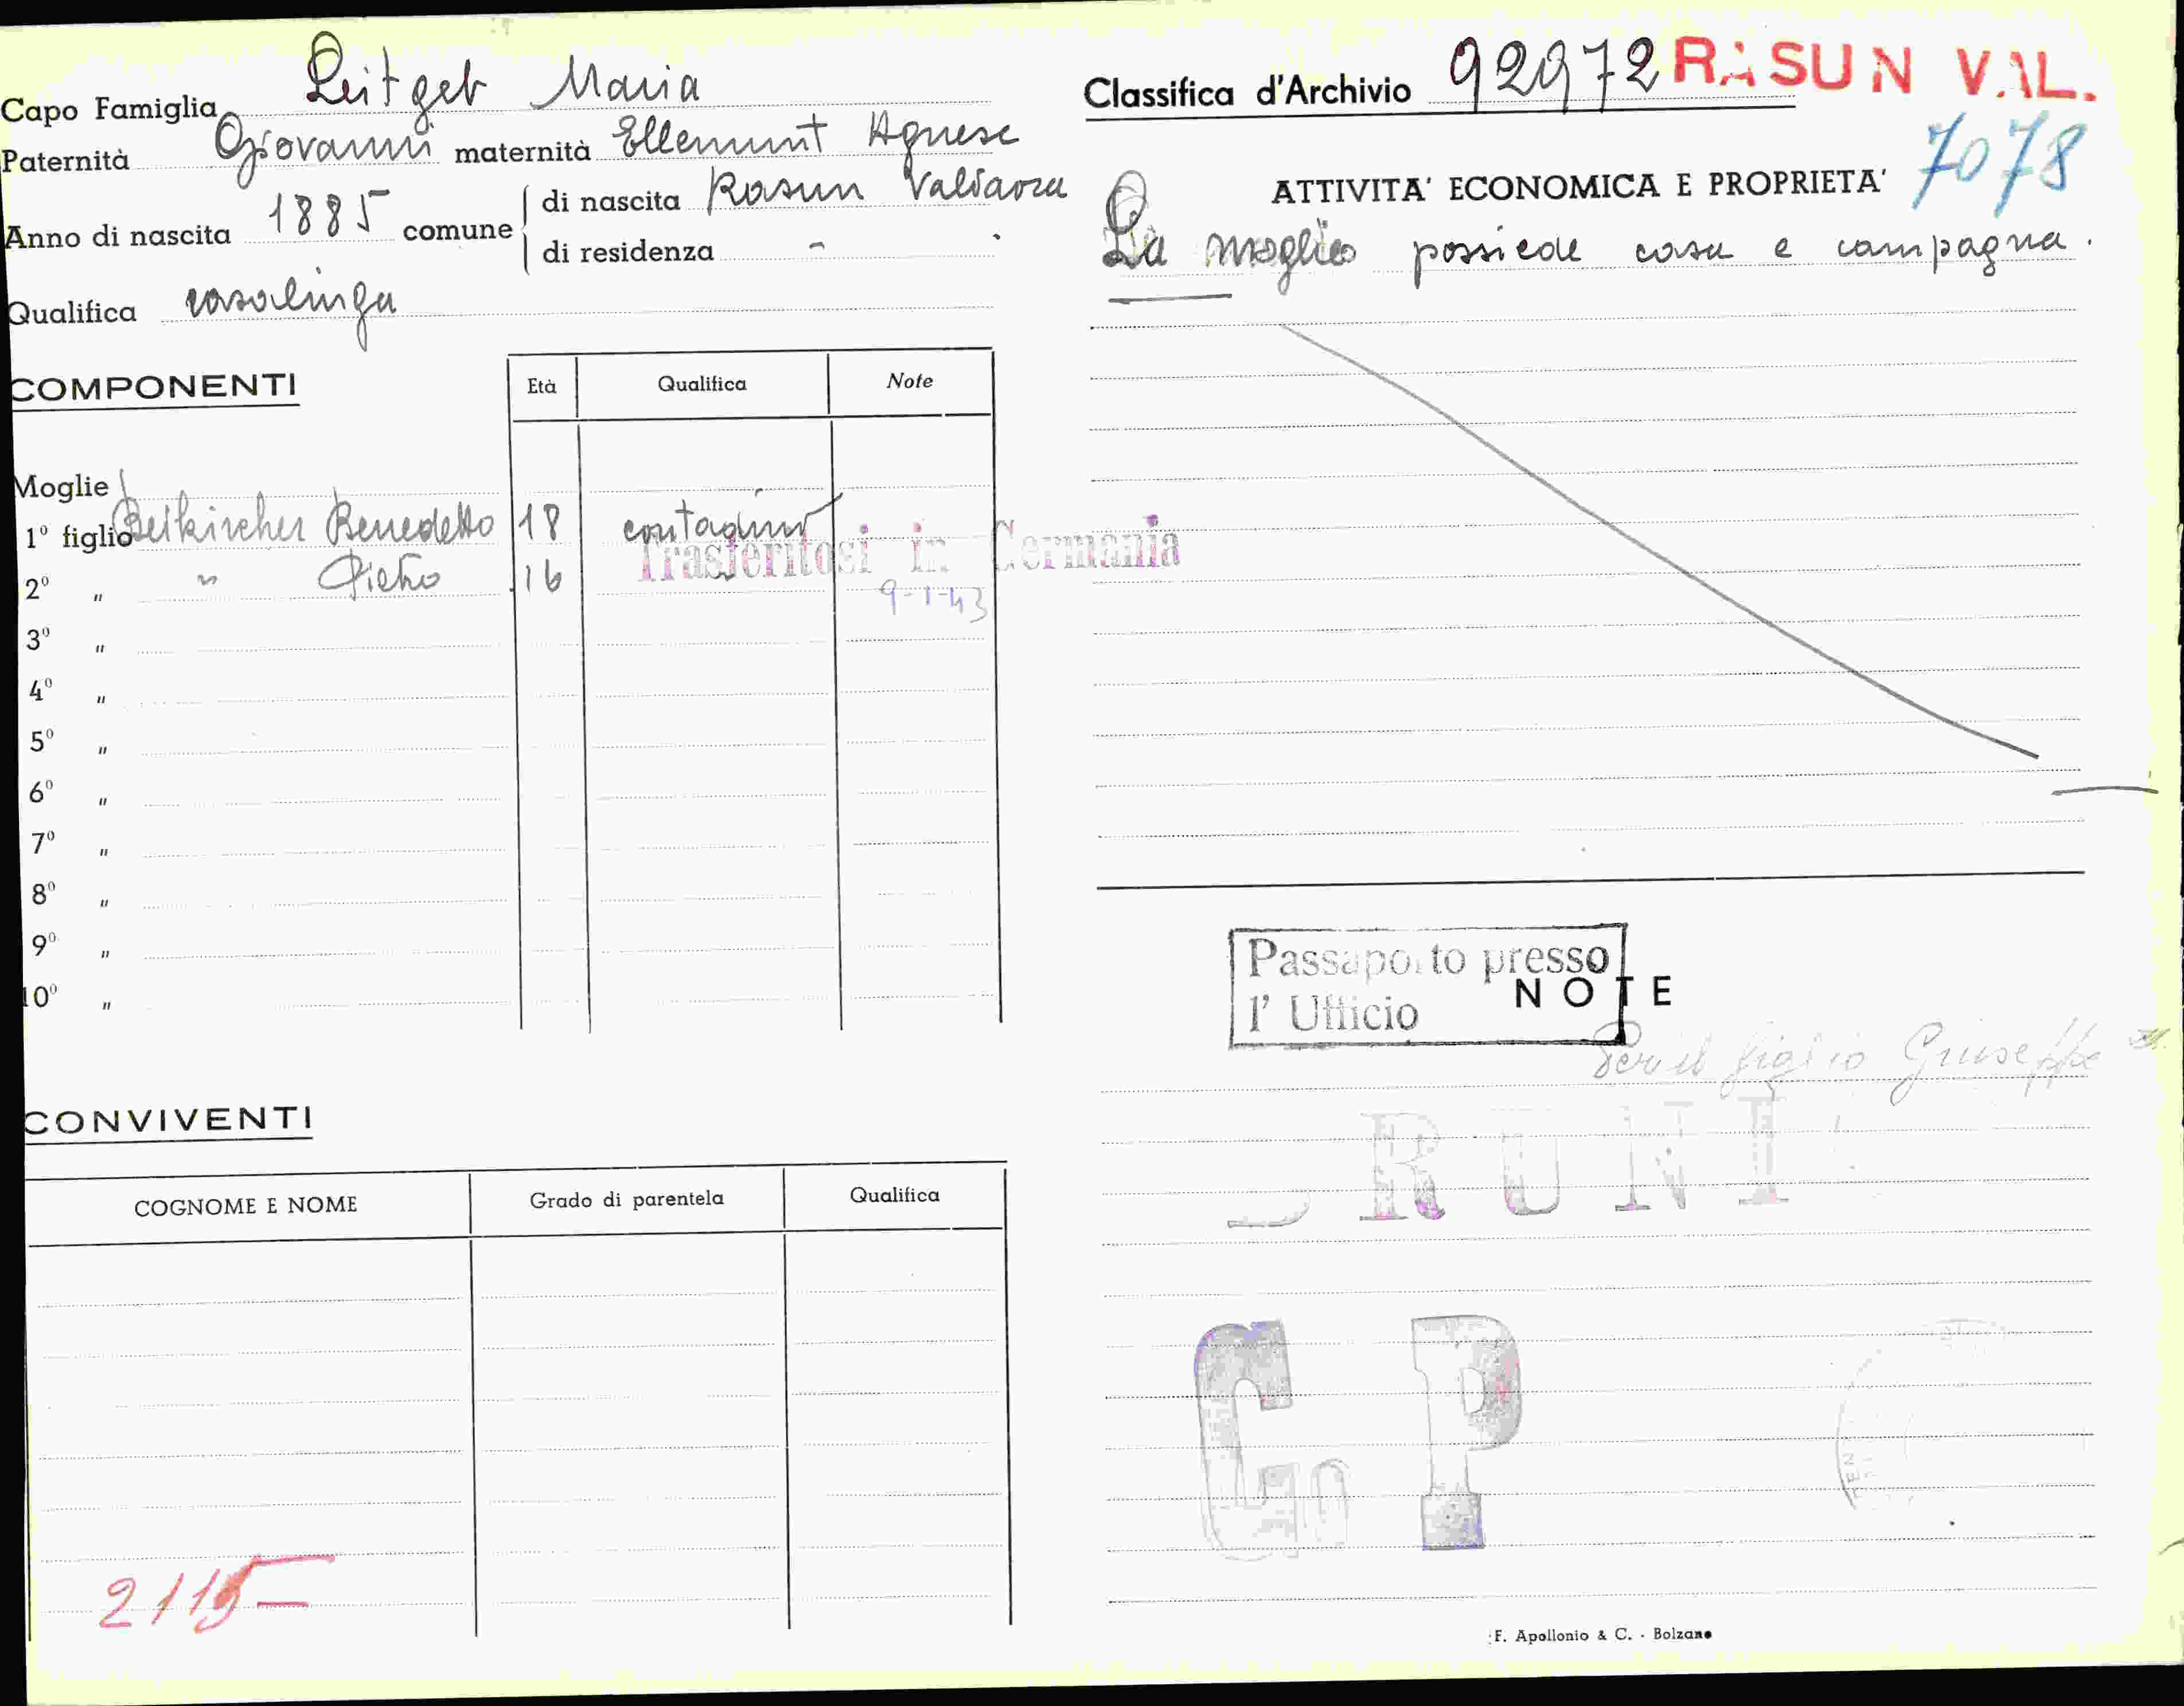 Capo Famiglia Leitgeb Maria
Paternità Giovanni maternità Ellemunt Agnese
Anno di nascita 1885 comune di nascita Rasun Valdaora
di residenza "
Qualifica casalinga
COMPONENTI
Età Qualifica Note
Moglie
1º figlio Beikircher Benedetto 18 contadino
Trasferitosi in Germania
2º " " Pietro 16
9-1-43
3º "
4º "
5º "
6º "
7º "
8º "
9º "
10º "
CONVIVENTI
COGNOME E NOME Grado di parentela Qualifica
2115
Classifica d'Archivio 92972 RASUN VAL.
7078
ATTIVITA' ECONOMICA E PROPRIETA'
La moglie possiede casa e campagna.
Passaporto presso
l' Ufficio
NOTE
Per il figlio Giuseppe
BRUNI
G P
F. Apollonio & C. - Bolzano